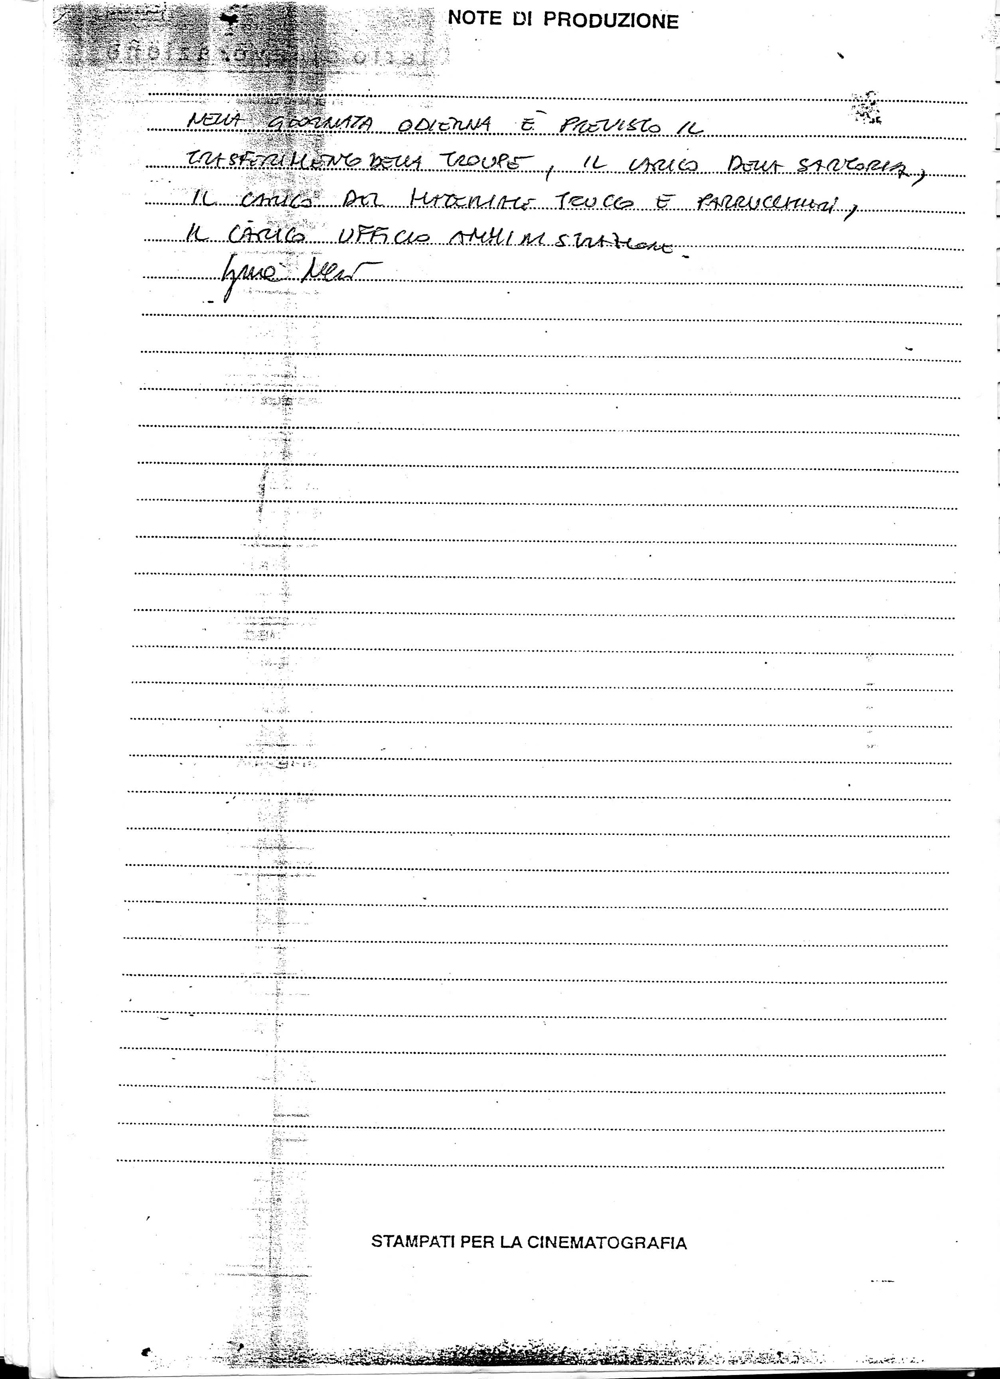 NOTE DI PRODUZIONE
NELLA GIORNATA ODIERNA È PREVISTO IL
TRASFERIMENTO DELLA TROUPE, IL CARICO DELLA SARTORIA,
IL CARICO DEL MATERIALE TRUCCO E PARRUCCHIERI,
IL CARICO UFFICIO AMMINISTRAZIONE.
STAMPATI PER LA CINEMATOGRAFIA